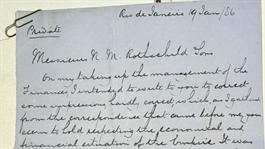 Rio de Janeiro 19 Jan/86
Private
Messieurs N. M. Rothschild Sons
On my taking up the management of the
Finances I intended to write to you to correct,
some expressions hardly correct, which, as I gathered
from the correspondence that came before me, you
seem to hold respecting the economical and
financial situation of the Empire. It was